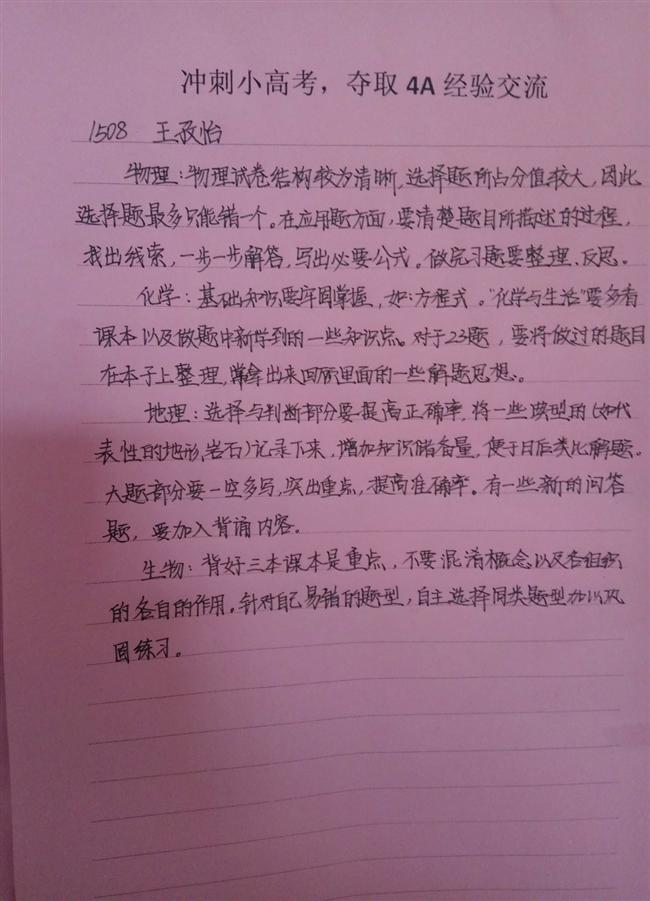 冲刺小高考，夺取 4A 经验交流
1508 王政怡
物理：物理试卷结构较为清晰，选择题所占分值较大，因此
选择题最多只能错一个。在应用题方面，要清楚题目所描述的过程，
找出线索，一步一步解答，写出必要公式。做完习题要整理、反思。
化学：基础知识要牢固掌握，如：方程式。“化学与生活”要多看
课本以及做题中新学到的一些知识点。对于23题，要将做过的题目
在本子上整理，常拿出来回顾里面的一些解题思想。
地理：选择与判断部分要提高正确率，将一些典型的（如代
表性的地形，岩石）记录下来，增加知识储备量，便于日后类比解题。
大题部分要一空多写，突出重点，提高准确率。有一些新的问答
题，要加入背诵内容。
生物：背好三本课本是重点，不要混淆概念以及各组织
的各自的作用。针对自己易错的题型，自主选择同类题型加以巩
固练习。